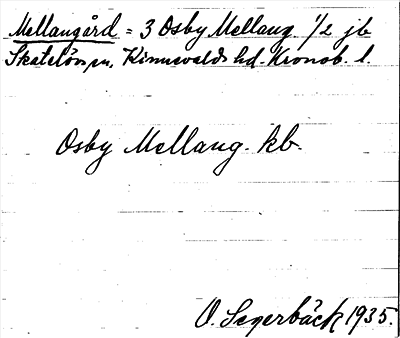 Mellangård = 3 Osby Mellang. 1/2 jb
Skatelövs sn, Kinnevalds hd. Kronob. l.
Osby Mellang. kb.
O. Segerbäck 1935.